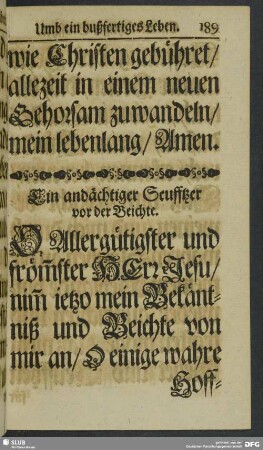 Umb ein bußfertiges Leben. 189
wie Christen gebühret/
allezeit in einem neuen
Gehorsam zuwandeln/
mein lebenlang/ Amen.
Ein andächtiger Seufftzer
vor der Beichte.
O Allergütigster und
fröm̃ster HErr Jesu/
nim̃ ietzo mein Bekänt-
niß und Beichte von
mir an/ O einige wahre
Hoff-
SLUB
DFG